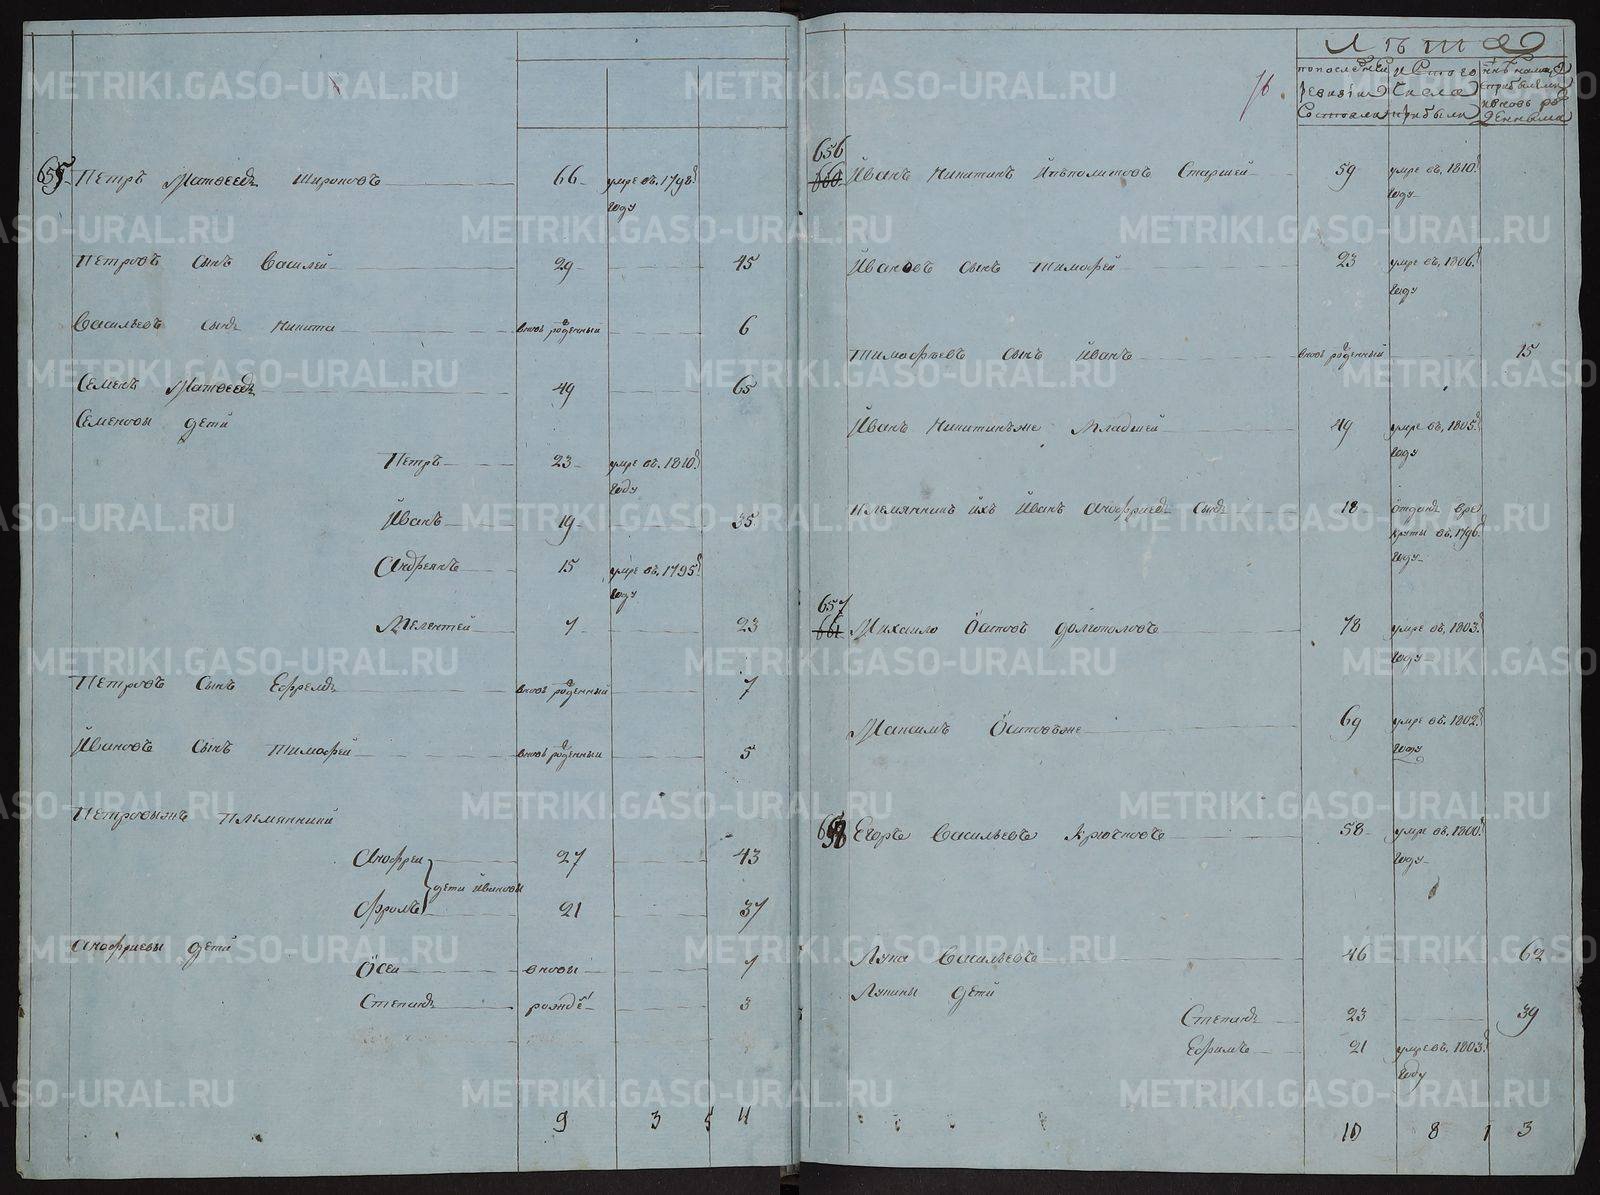 655 Петръ Матвеевъ Широковъ 66 умре въ 1798
году
Петровъ сынъ Василей 29 45
Васильевъ сынъ Никита вновь рожденный 6
Семенъ Матвеевъ 49 65
Семеновы дети
Петръ 23 умре въ 1810
году
Иванъ 19 35
Андреянъ 15 умре въ 1795
году
Мелентей 7 23
Петровъ сынъ Ефремъ вновь рожденный 7
Ивановъ сынъ Тимофей вновь рожденный 5
Петровыхъ племянники
Анофреи 27 43
дети Ивановы
Фролъ 21 37
Анофриевы дети
Осеи вновы 7
Степанъ рожде 3
9 3 5 11
76
Лѣта
по последней
ревизии
состояли
656
660 Иванъ Никитинъ Старшей 59 умре въ 1810
году
Ивановъ сынъ Тимофей 23 умре въ 1806
году
Тимофѣевъ сынъ Иванъ вновь рожденный 15
Иванъ Никитинъ же Младшей 49 умре въ 1805
году
Племянникъ ихъ Иванъ Анофриевъ сынъ 18 отданъ в ре
круты въ 1796
году
657
661 Михаило Осиповъ Долгополовъ 78 умре въ 1803
году
Максимъ Осиповъ же 69 умре въ 1802
году
658 Егоръ Васильевъ Крючковъ 58 умре въ 1800
году
Лупа Васильевъ 46 62
Лупины дети
Степанъ 23 39
Ефимъ 21 умре въ 1803
году
10 8 1 3
METRIKI.GASO-URAL.RU